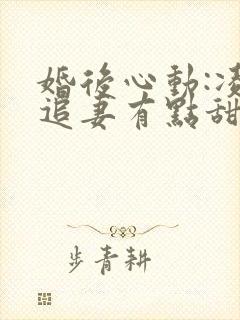 婚後心動:凌
追妻有點甜
步青耕